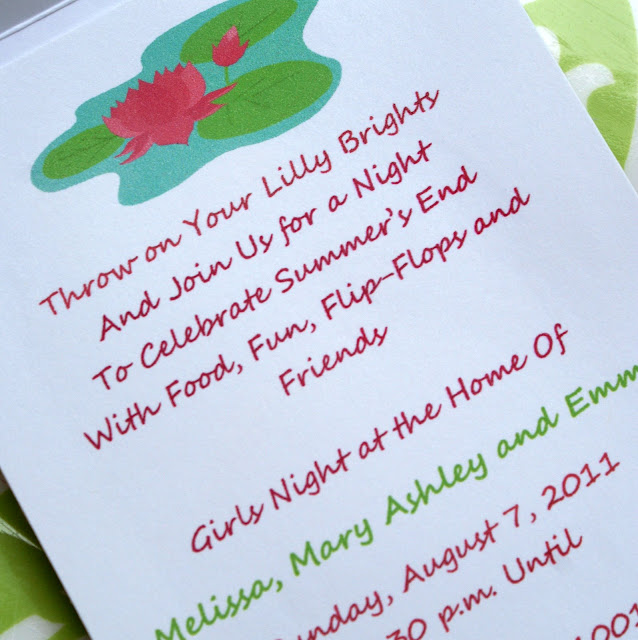 Throw on Your Lilly Brights
And Join Us for a Night
To Celebrate Summer's End
With Food, Fun, Flip-Flops and
Friends
Girls Night at the Home Of
Melissa, Mary Ashley and Emm
unday, August 7, 2011
30 p.m. Until
1001